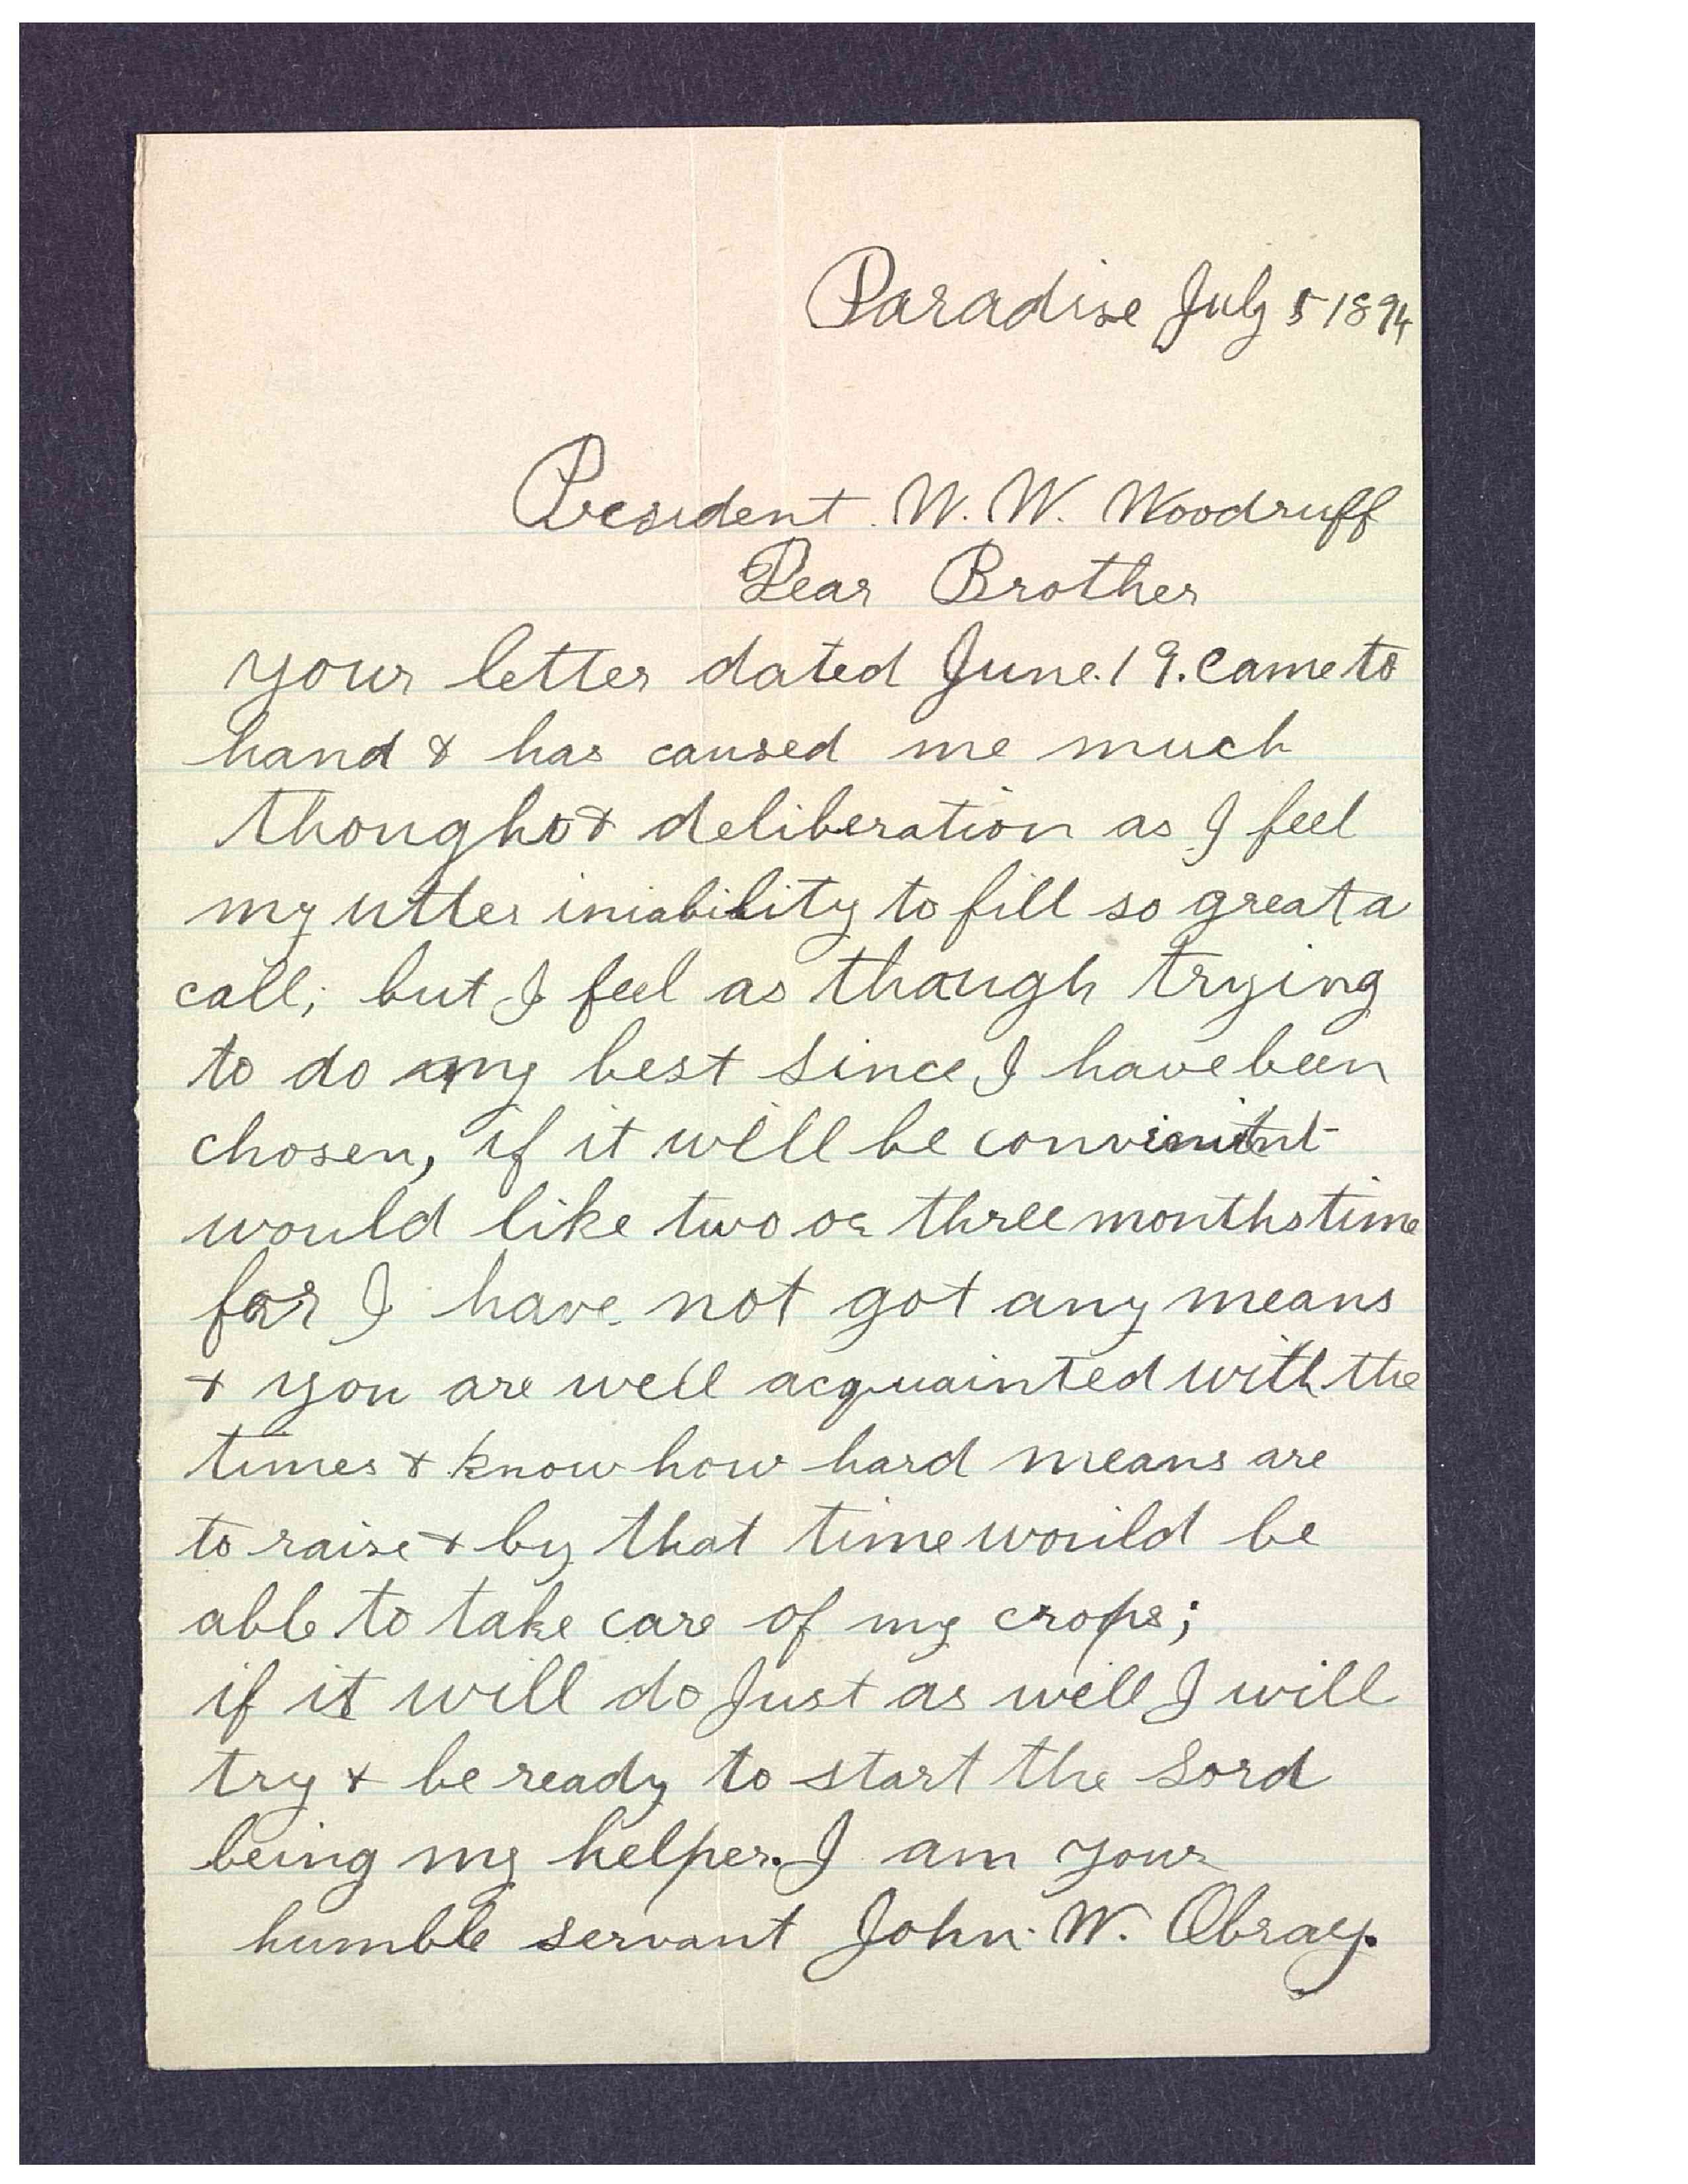 Paradise July 5 1894
President. W. W. Woodruff
Dear Brother
your letter dated June. 19. Came to
hand & has caused me much
thought & deliberation as I feel
my utter iniability to fill so great a
call; but I feel as though trying
to do my best since I have been
chosen, if it will be convenient
would like two or three months time
for I have not got any means
& you are well acquainted with the
times & know how hard means are
to raise & by that time would be
able to take care of my crops;
if it will do Just as well I will
try & be ready to start the Lord
being my helper. I am your
humble servant John. W. Obray.